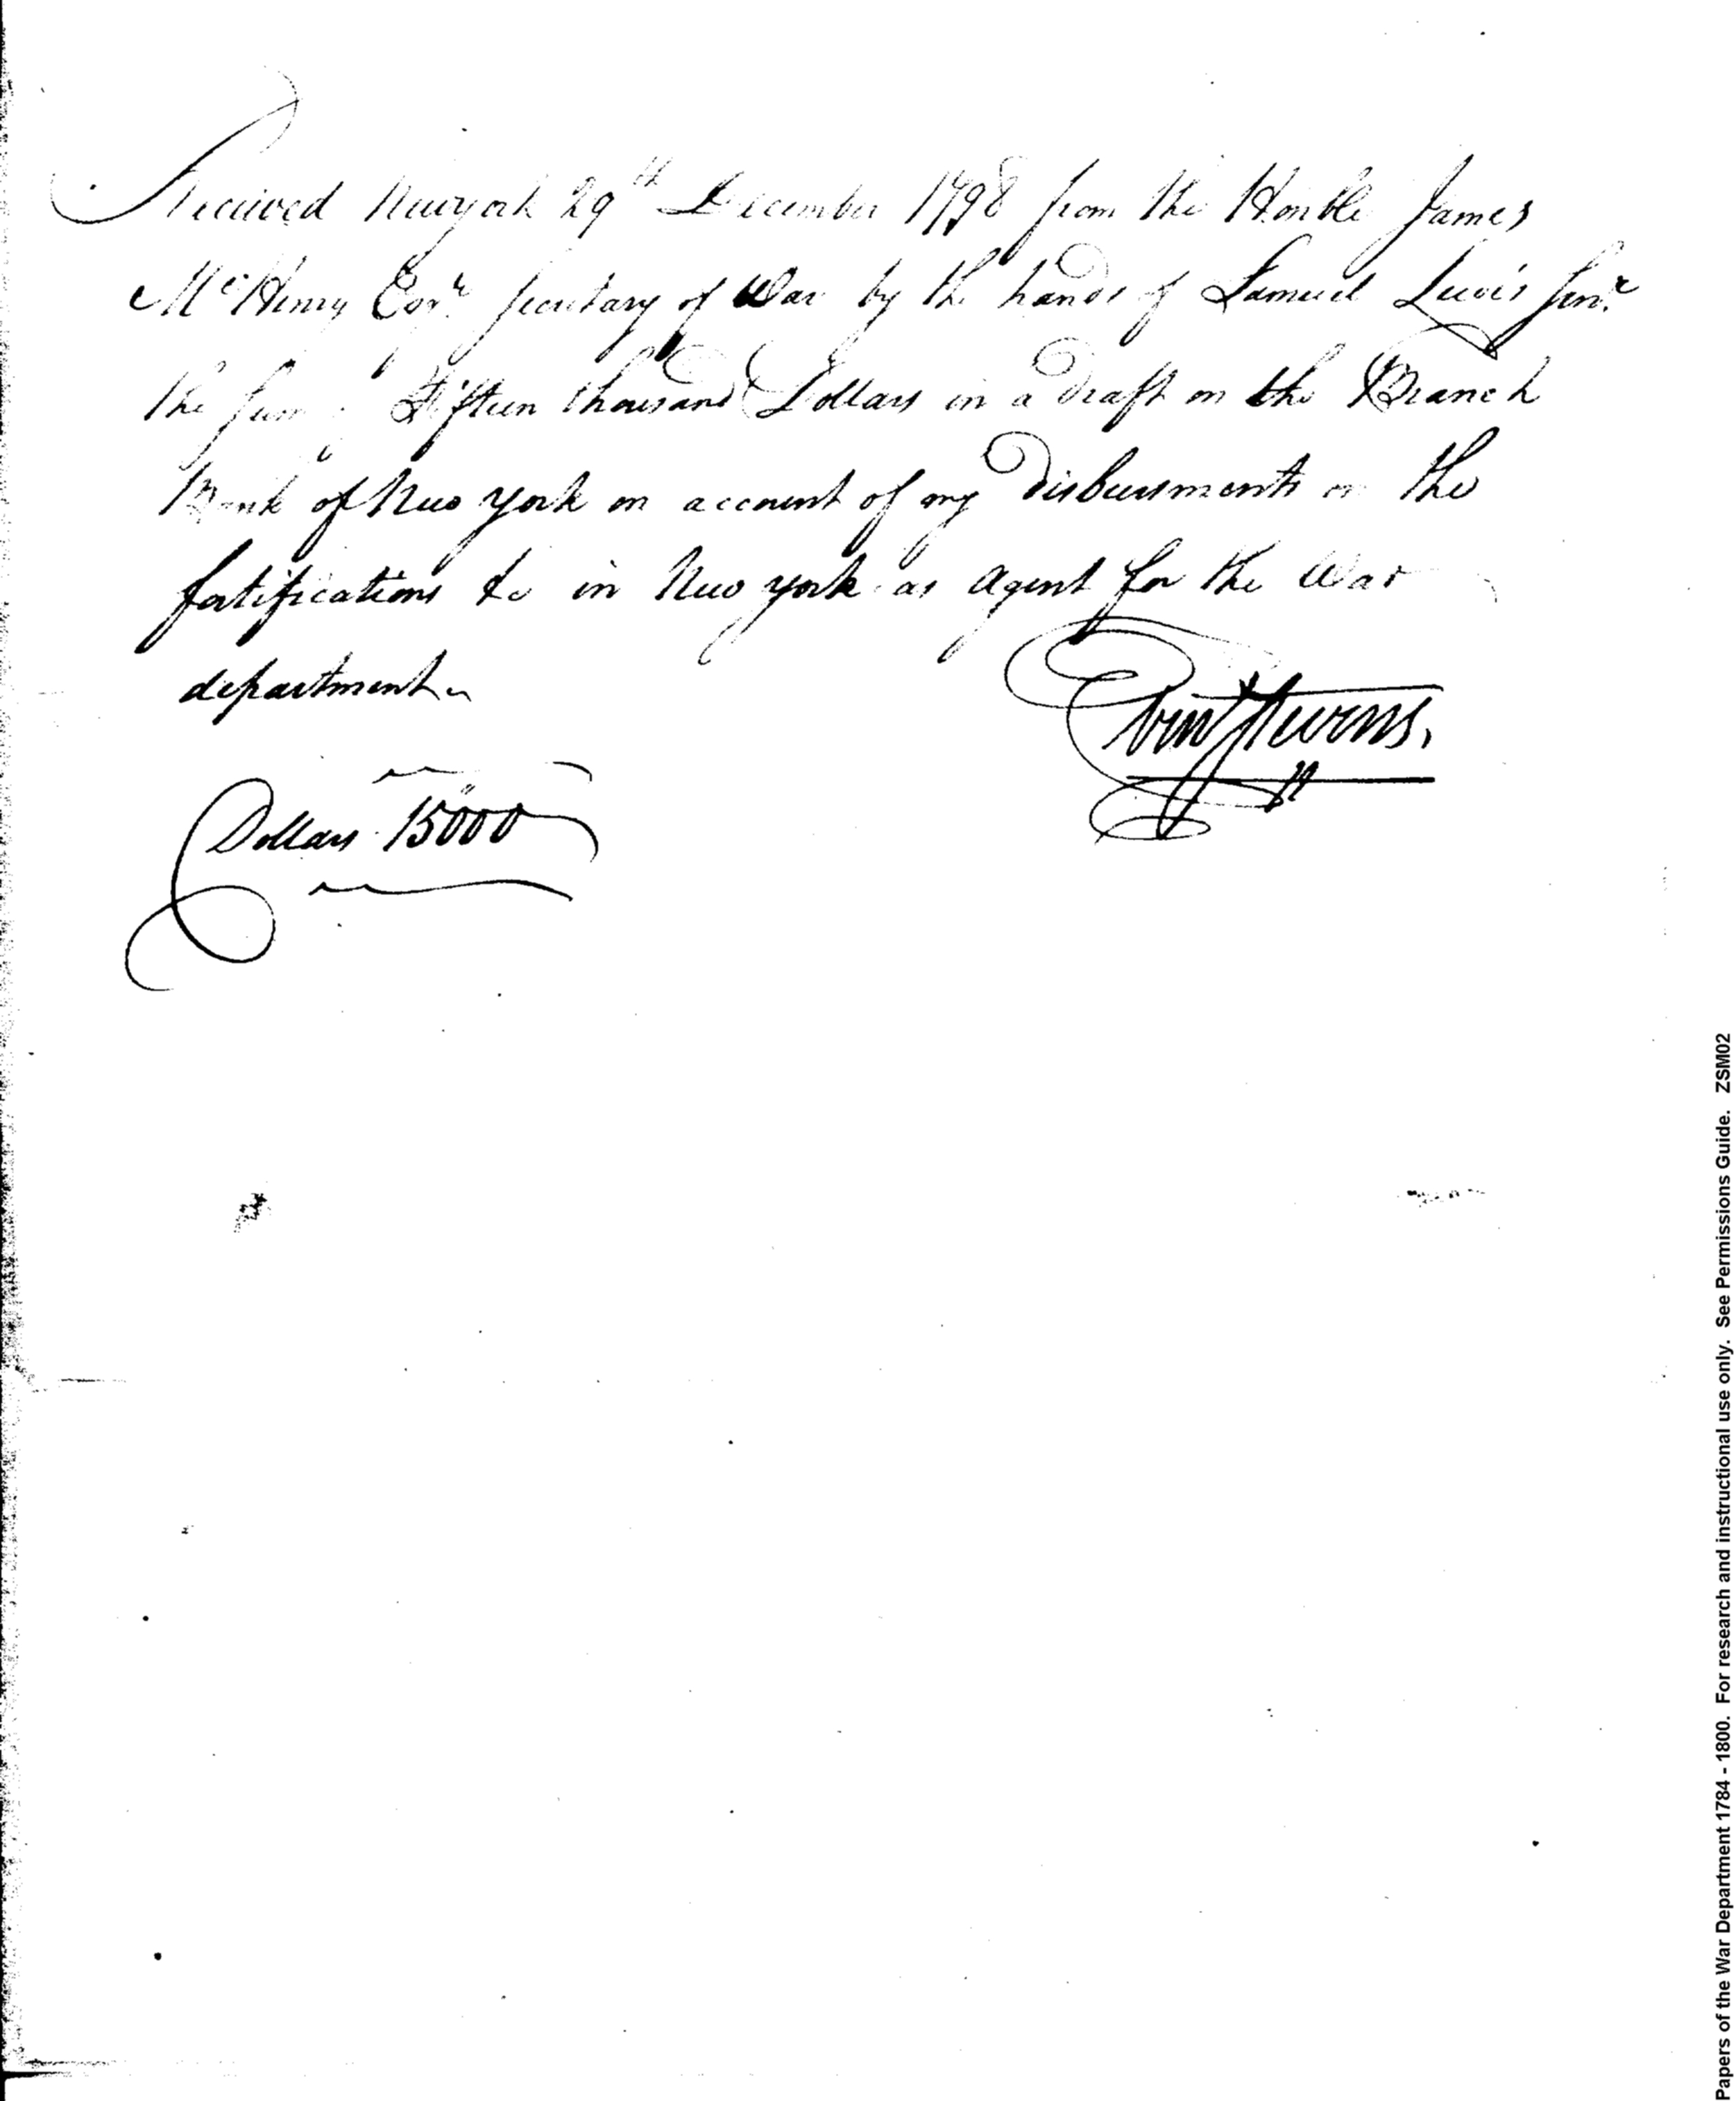 Received Newyork 29th December 1798 from the Honble James
McHenry Esqr. Secretary of War by the hands of Samuel Lewis Senr.
the sum of Fifteen thousand Dollars in a draft on the Branch
Bank of New york on account of my disbursments on the
fortifications &c in New york as agent for the War
department
Ebenr Stevens.
Dollars 15000
Papers of the War Department 1784 - 1800. For research and instructional use only. See Permissions Guide. ZSM02